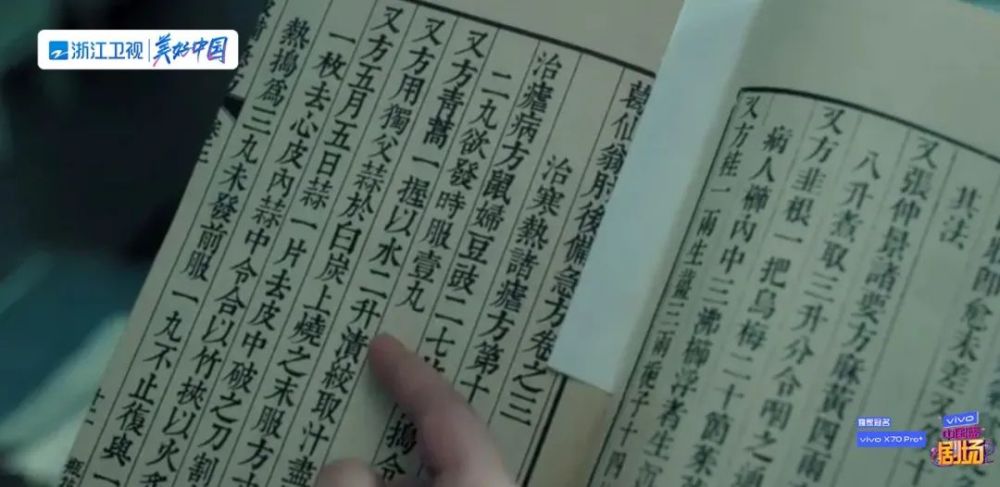 浙江卫视
美好中国
未差又
其法
又張仲景諸要方麻黃四兩
八升煮取三升分令咽之通
又方韭根一把烏梅二十箇茱
病人櫛內中三沸櫛浮者生沉
又方桂一兩生薑三兩梔子十四
葛仙翁肘後備急方卷之三
治寒熱諸瘧方第十
治瘧病方鼠婦豆豉二七
搗令
二丸欲發時服壹丸
又方青蒿一握以水二升漬絞取汁盡
又方用獨父蒜於白炭上燒之末服方
又方五月五日蒜一片去皮中破之刀割
一枚去心皮內蒜中令合以竹挾以火炙
熱搗爲三丸未發前服一丸不止復與一
獨家冠名
vivo X70 Pro+
vivo
剧场